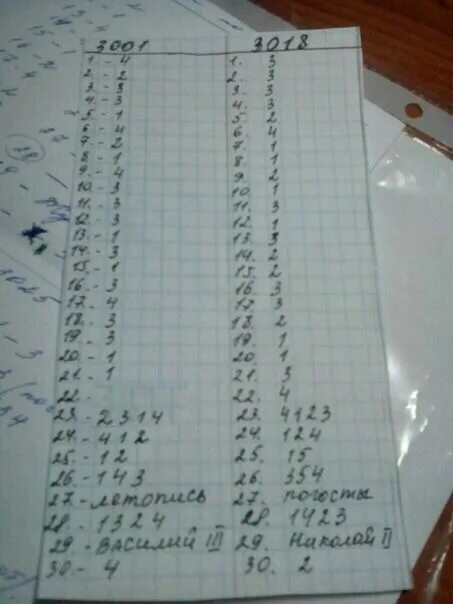 3001 3018
1. - 4 1. 3
2. - 2 2. 3
3. - 3 3. 3
4. - 3 4. 3
5. - 1 5. 2
6. - 4 6. 4
7. - 2 7. 1
8. - 1 8. 1
9. - 4 9. 2
10. - 3 10. 1
11. - 3 11. 3
12. - 3 12. 1
13. - 1 13. 3
14. - 3 14. 2
15. - 1 15. 2
16. - 3 16. 3
17. - 4 17. 3
18. - 3 18. 2
19. - 3 19. 1
20. - 1 20. 1
21. - 1 21. 3
22. - 22. 4
23. - 2314 23. 4123
24. - 412 24. 124
25. - 12 25. 15
26. - 143 26. 354
27. - летопись 27. погосты
28. - 1324 28. 1423
29. - Василий III 29. Николай II
30 - 4 30. 2